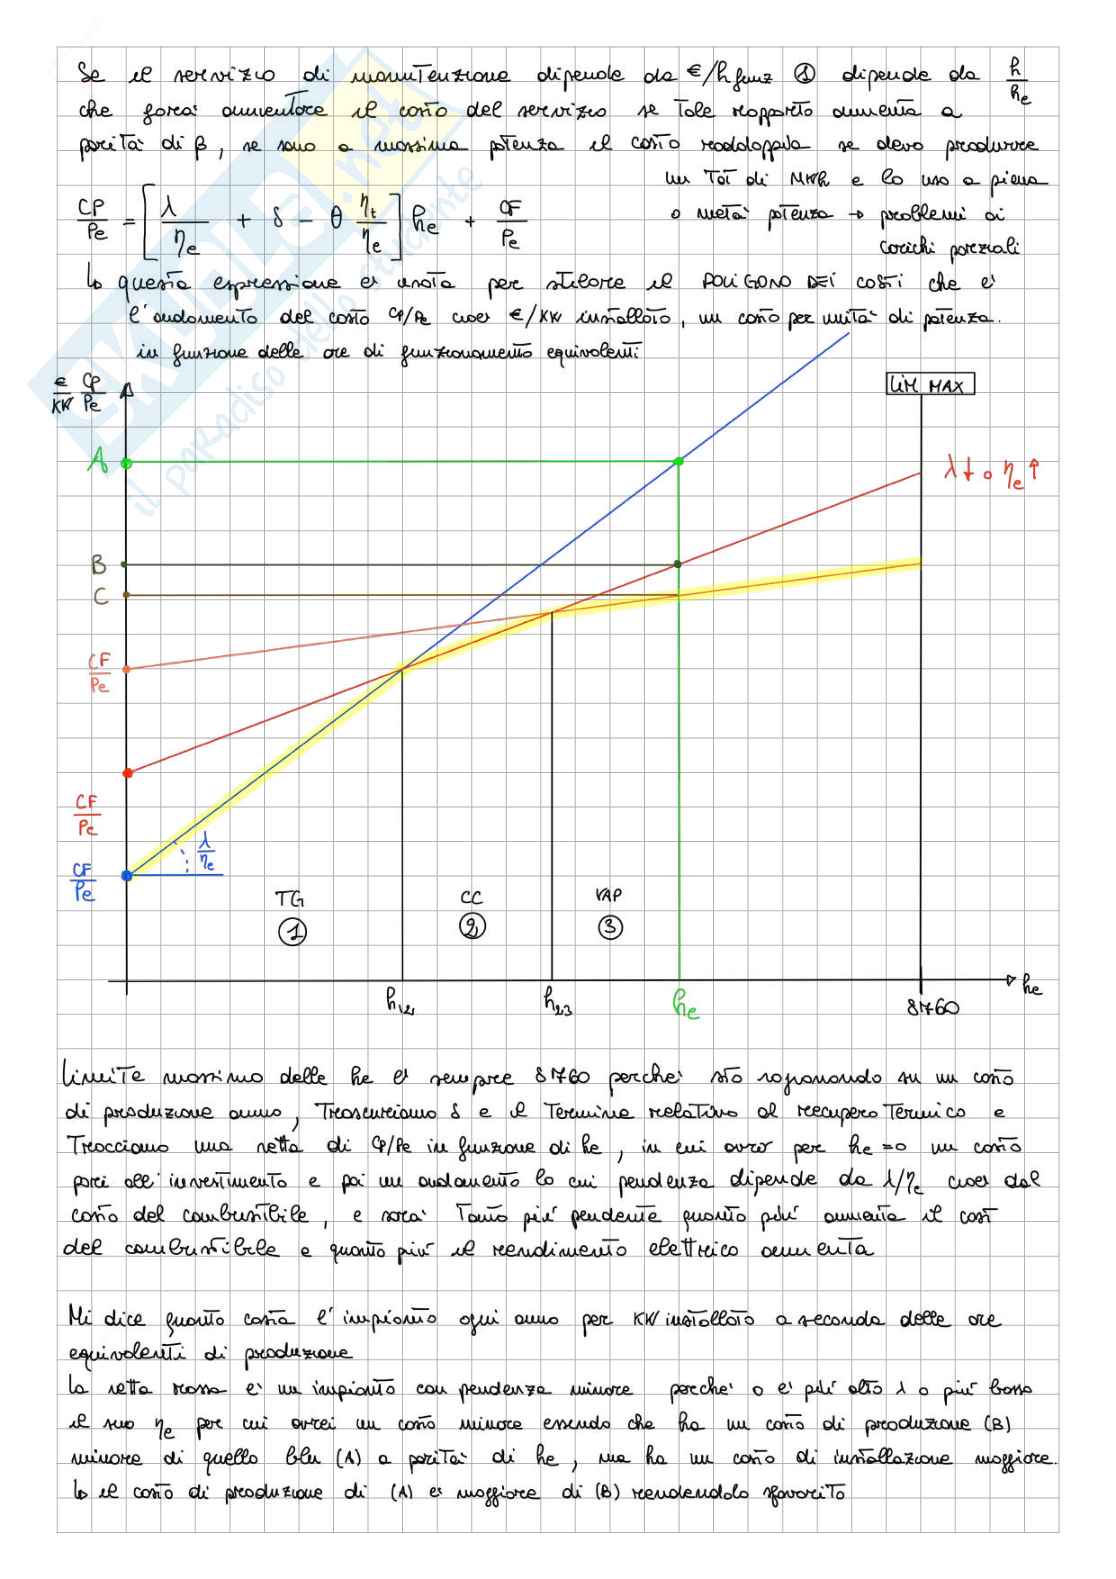 Se il servizio di manutenzione dipende da €/h funz ① dipende da h/he
che farà aumentare il costo del servizio se tale rapporto aumenta a
parità di β, se sono a massima potenza il costo raddoppia se devo produrre
un tot di MWh e lo uso a piena
o metà potenza → problemi ai
carichi parziali
CP/Pe = [ λ/ηe + δ - θ ηt/ηe ] he + CF/Pe
↳ questa espressione è usata per stilare il POLIGONO DEI COSTI che è
l'andamento del costo CP/Pe cioè €/KW installato, un costo per unità di potenza.
in funzione delle ore di funzionamento equivalenti
€/KW CP/Pe
LIM MAX
A
λ↓ o ηe↑
B
C
CF/Pe
CF/Pe
λ/ηe
CF/Pe
TG CC VAP
① ② ③
h12 h23 he 8760 he
Limite massimo delle he è sempre 8760 perché sto ragionando su un costo
di produzione annuo, Trascuriamo δ e il Termine relativo al recupero Termico e
Tracciamo una retta di CP/Pe in funzione di he, in cui avrò per he=0 un costo
pari all'investimento e poi un andamento la cui pendenza dipende da λ/ηe cioè dal
costo del combustibile, e sarà Tanto più pendente quanto più aumenta il cost
del combustibile e quanto più il rendimento elettrico aumenta
Mi dice quanto costa l'impianto ogni anno per KW installato a seconda delle ore
equivalenti di produzione
La retta rossa è un impianto con pendenza minore perché o è più alto λ o più basso
il suo ηe per cui avrei un costo minore essendo che ha un costo di produzione (B)
minore di quello blu (A) a parità di he, ma ha un costo di installazione maggiore.
↳ il costo di produzione di (A) è maggiore di (B) rendendolo sfavorito
SKUOLA.net
il paradiso dello studente